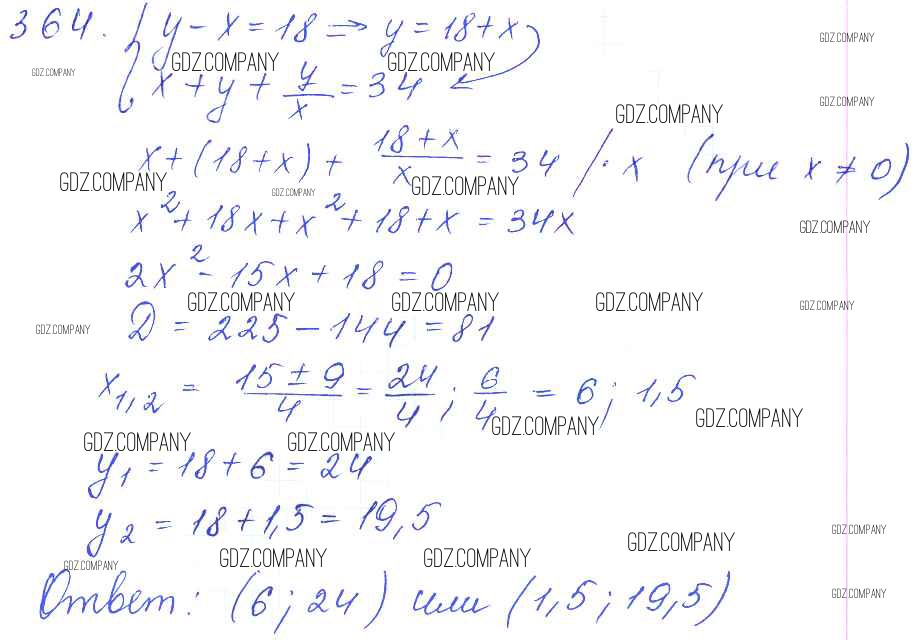 364. { y - x = 18 ⇒ y = 18 + x
GDZ.COMPANY GDZ.COMPANY GDZ.COMPANY GDZ.COMPANY
x + y + y/x = 34
GDZ.COMPANY GDZ.COMPANY
x + (18 + x) + (18 + x)/x = 34 / · x (при x ≠ 0)
GDZ.COMPANY GDZ.COMPANY GDZ.COMPANY
x² + 18x + x² + 18 + x = 34x
GDZ.COMPANY
2x² - 15x + 18 = 0
GDZ.COMPANY GDZ.COMPANY GDZ.COMPANY GDZ.COMPANY
GDZ.COMPANY
D = 225 - 144 = 81
x₁,₂ = (15 ± 9)/4 = 24/4; 6/4 = 6; 1,5
GDZ.COMPANY GDZ.COMPANY
GDZ.COMPANY GDZ.COMPANY
y₁ = 18 + 6 = 24
y₂ = 18 + 1,5 = 19,5
GDZ.COMPANY GDZ.COMPANY
GDZ.COMPANY GDZ.COMPANY GDZ.COMPANY
Ответ: (6; 24) или (1,5; 19,5)
GDZ.COMPANY